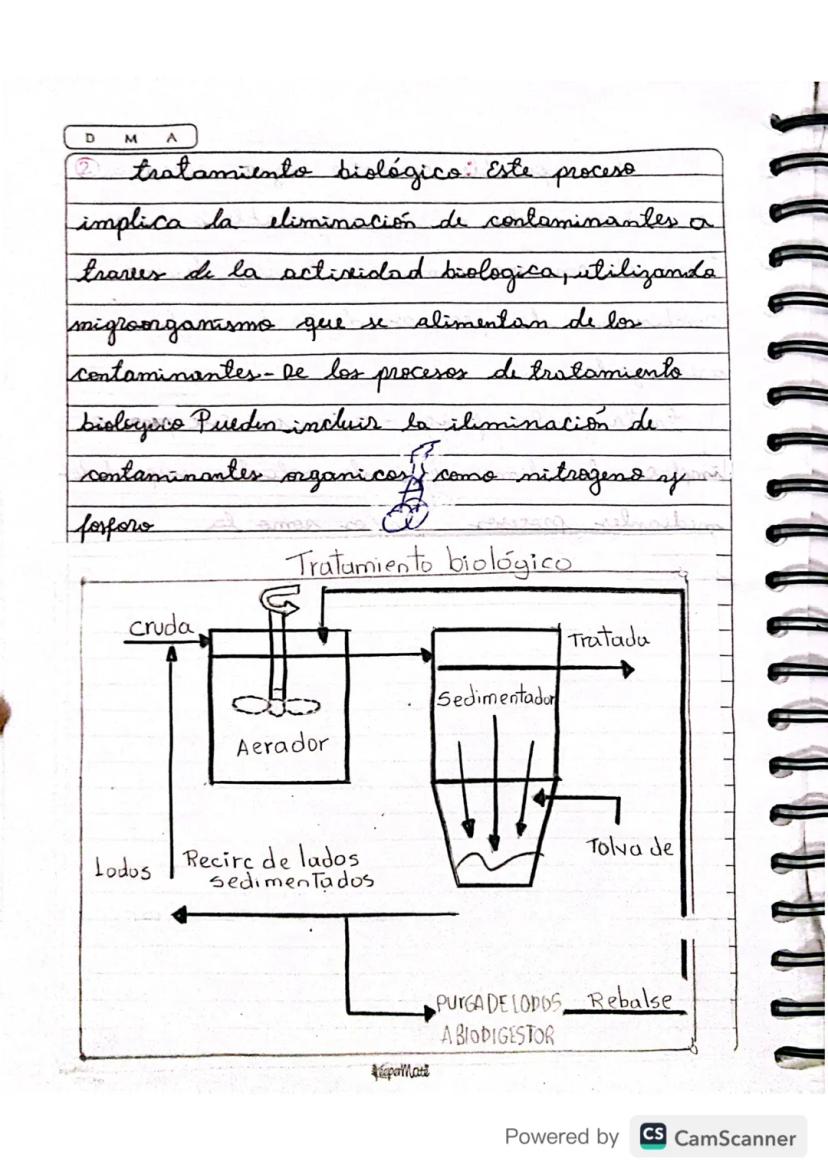 D M A
2 tratamiento biológico: Este proceso
implica la eliminación de contaminantes a
traves de la actividad biologica, utilizando
migroorganismo que se alimentan de los
contaminantes- De los procesos de tratamiento
biologico Pueden incluir la iliminación de
contaminantes organicos, como nitrogeno y
fosforo
Tratamiento biológico
Cruda
Tratada
Sedimentador
Aerador
Tolva de
Lodos
Recirc de lodos
sedimentados
PURGA DE LODOS
A BIODIGESTOR
Rebalse
Powered by CS CamScanner